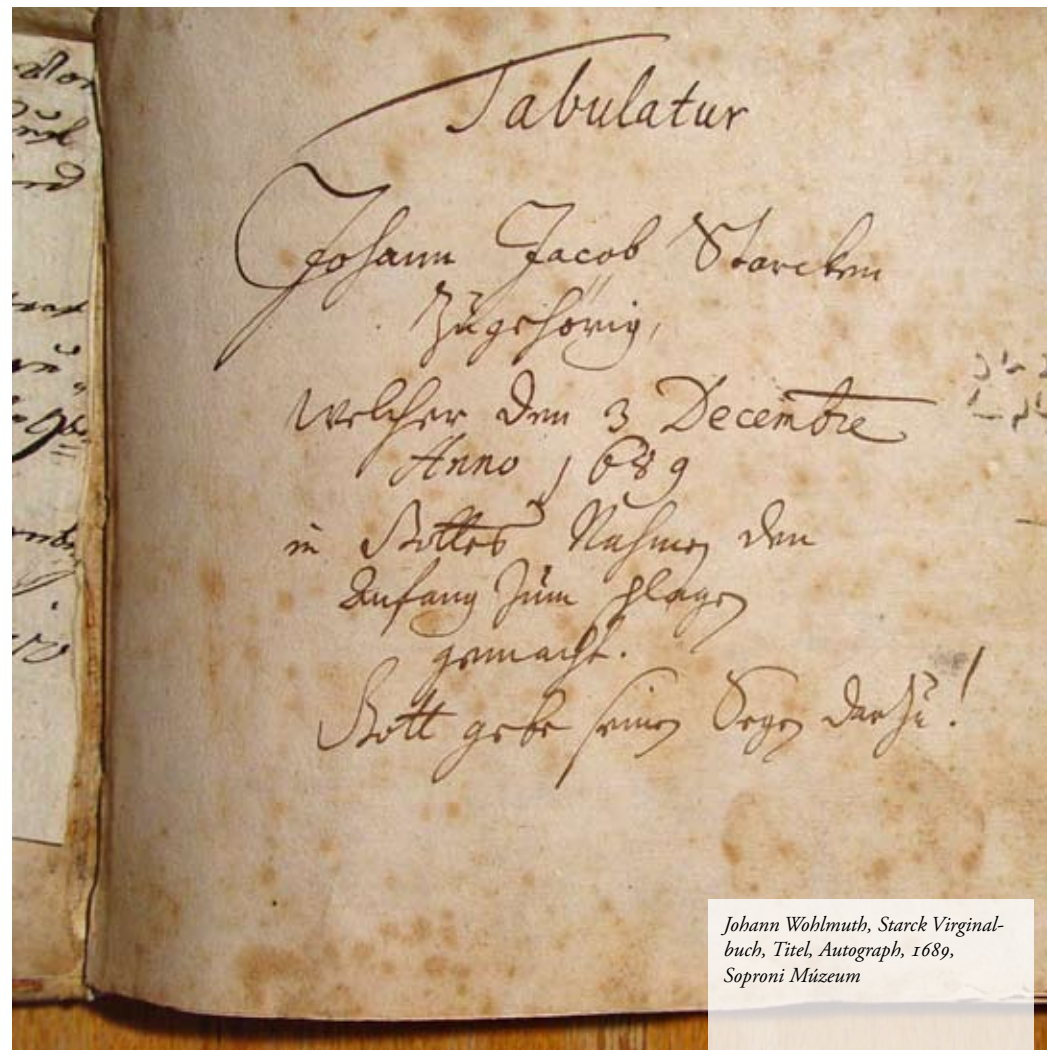 Tabulatur
Johann Jacob Starcken
Zugehörig,
Welcher den 3 Decembre
Anno 1689
in Gottes Nahmen den
Anfang zum schlagen
gemacht.
Gott gebe seinen Segen darzu!
Johann Wohlmuth, Starck Virginal-
buch, Titel, Autograph, 1689,
Soproni Múzeum